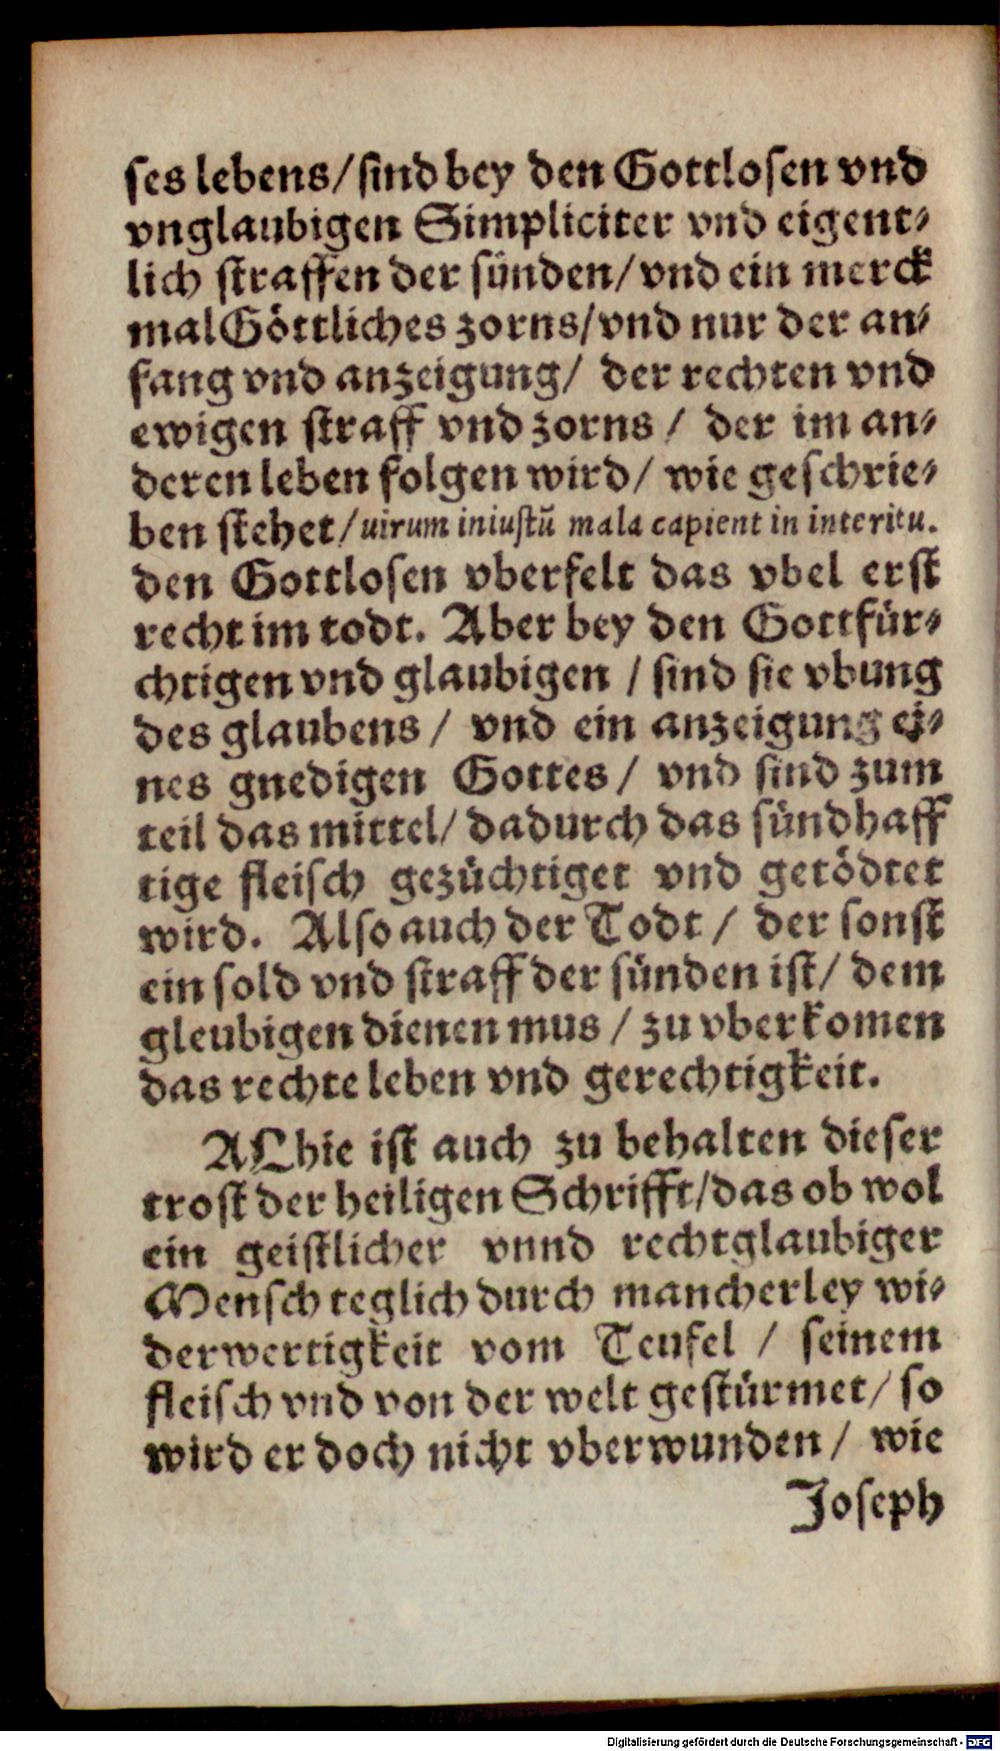 ses lebens/ sind bey den Gottlosen vnd
vnglaubigen Simpliciter vnd eigent⸗
lich straffen der sünden/ vnd ein merck
mal Göttliches zorns/ vnd nur der an⸗
fang vnd anzeigung/ der rechten vnd
ewigen straff vnd zorns / der im an⸗
deren leben folgen wird/ wie geschrie⸗
ben stehet/ uirum iniustũ mala capient in interitu.
den Gottlosen vberfelt das vbel erst
recht im todt. Aber bey den Gottfür⸗
chtigen vnd glaubigen / sind sie vbung
des glaubens / vnd ein anzeigung ei⸗
nes gnedigen Gottes / vnd sind zum
teil das mittel/ dadurch das sündhaff
tige fleisch gezüchtiget vnd getödtet
wird. Also auch der Todt / der sonst
ein sold vnd straff der sünden ist/ dem
gleubigen dienen mus / zu vberkomen
das rechte leben vnd gerechtigkeit.
ALhie ist auch zu behalten dieser
trost der heiligen Schrifft/ das ob wol
ein geistlicher vnnd rechtglaubiger
Mensch teglich durch mancherley wi⸗
derwertigkeit vom Teufel / seinem
fleisch vnd von der welt gestürmet/ so
wird er doch nicht vberwunden / wie
Joseph
Digitalisierung gefördert durch die Deutsche Forschungsgemeinschaft - DFG